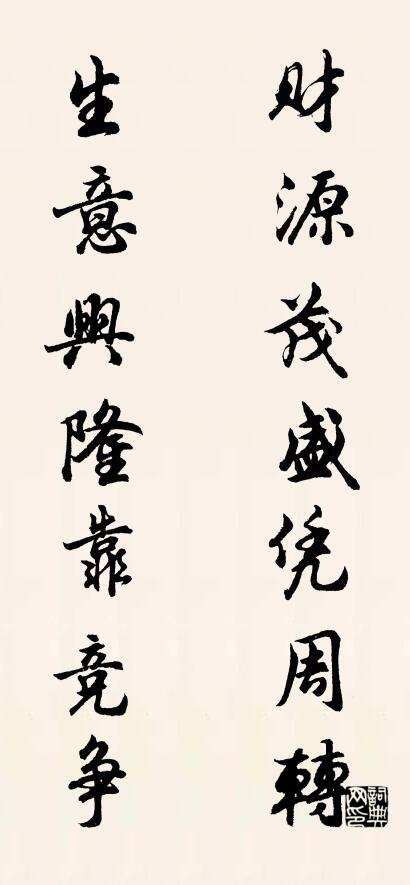 财源茂盛凭周轉
生意興隆靠竞争
詞典网印